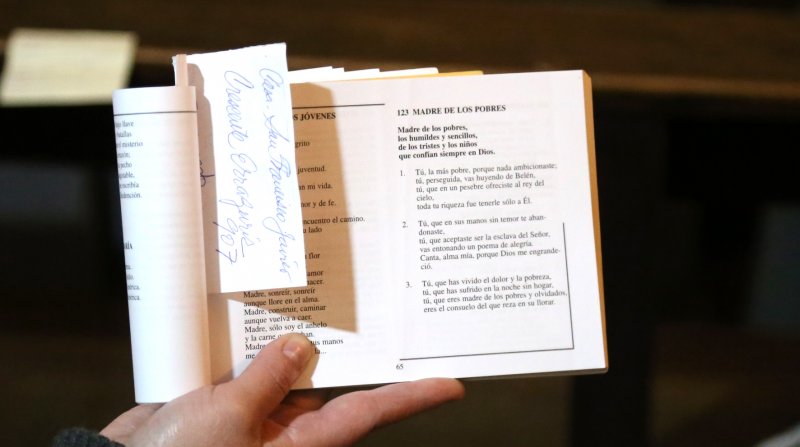 llave
batallas
el misterio
pecho
escribía
redención.
Casa - San Francisco Javier
Crescente Errázuriz
907
S JÓVENES
grito
juventud.
an mi vida.
nor y de fe.
ncuentro el camino.
a lado
flor
amor
nacer.
Madre, sonreír, sonreír
aunque llore en el alma.
Madre, construir, caminar
aunque vuelva a caer.
Madre, sólo soy el anhelo
y la carne
Madre tus manos
me la...
123 MADRE DE LOS POBRES
Madre de los pobres,
los humildes y sencillos,
de los tristes y los niños
que confían siempre en Dios.
1. Tú, la más pobre, porque nada ambicionaste;
tú, perseguida, vas huyendo de Belén,
tú, que en un pesebre ofreciste al rey del
cielo,
toda tu riqueza fue tenerle sólo a Él.
2. Tú, que en sus manos sin temor te aban-
donaste,
tú, que aceptaste ser la esclava del Señor,
vas entonando un poema de alegría.
Canta, alma mía, porque Dios me engrande-
ció.
3. Tú, que has vivido el dolor y la pobreza,
tú, que has sufrido en la noche sin hogar,
tú, que eres madre de los pobres y olvidados,
eres el consuelo del que reza en su llorar.
65